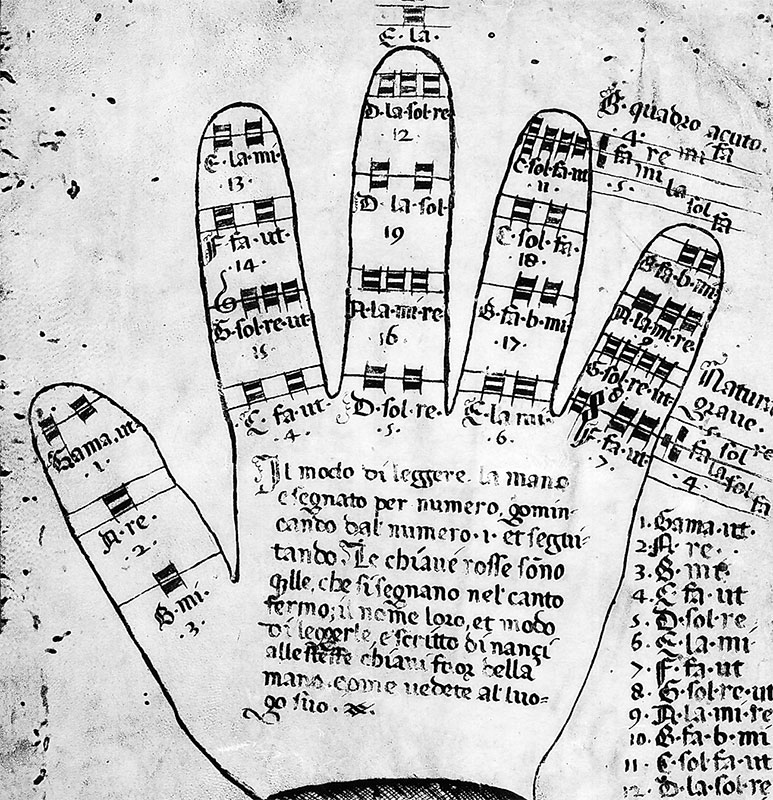 E·la·
D·la·sol·re
12·
E·la·mi·
·13·
D·la·sol
19
C·sol·fa·ut
·11·
B·quadro acuto·
·4· re mi fa
fa mi la sol fa
·5·
F·fa·ut·
·14·
C·sol·fa·
18·
B·fa·b·mi
G·sol·re·ut
·15·
A·la·mi·re
·16·
B·fa·b·mi
·17·
A·la·mi·re
9·
G·sol·re·ut
8
C·fa·ut·
·4·
D·sol·re·
·5·
E·la·mi·
·6·
F·fa·ut·
·7·
Natura
grave·
·5· sol re
fa la sol fa
·4·
Gama·ut·
·1·
A·re·
·2·
B·mi·
·3·
Il modo di leggere la mano
e segnato per numero, gomin-
cando dal numero·1· et segui-
tando· Le chiave rosse sōno
q̄lle, che si segnano nel canto
fermo; il nome loro, et modo
di leggerle, e scritto dinanci
alle stesse chiavi fuor della
mano· come vedete al luo-
go suo·
1·Gama·ut·
2·A·re·
3·B·mi
4·C·fa·ut
5·D·sol·re
6·E·la·mi
7·F·fa·ut
8·G·sol·re·ut
9·A·la·mi·re
10·B·fa·b·mi
11·C·sol·fa·ut
12·D·la·sol·re